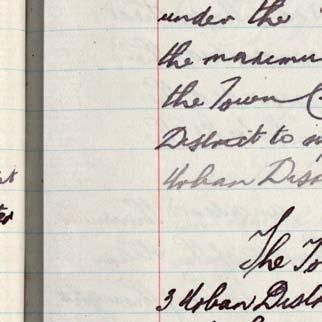 under the
the maximu
the Town C
District to
Urban Dis
ter
The To
3 Urban Distr